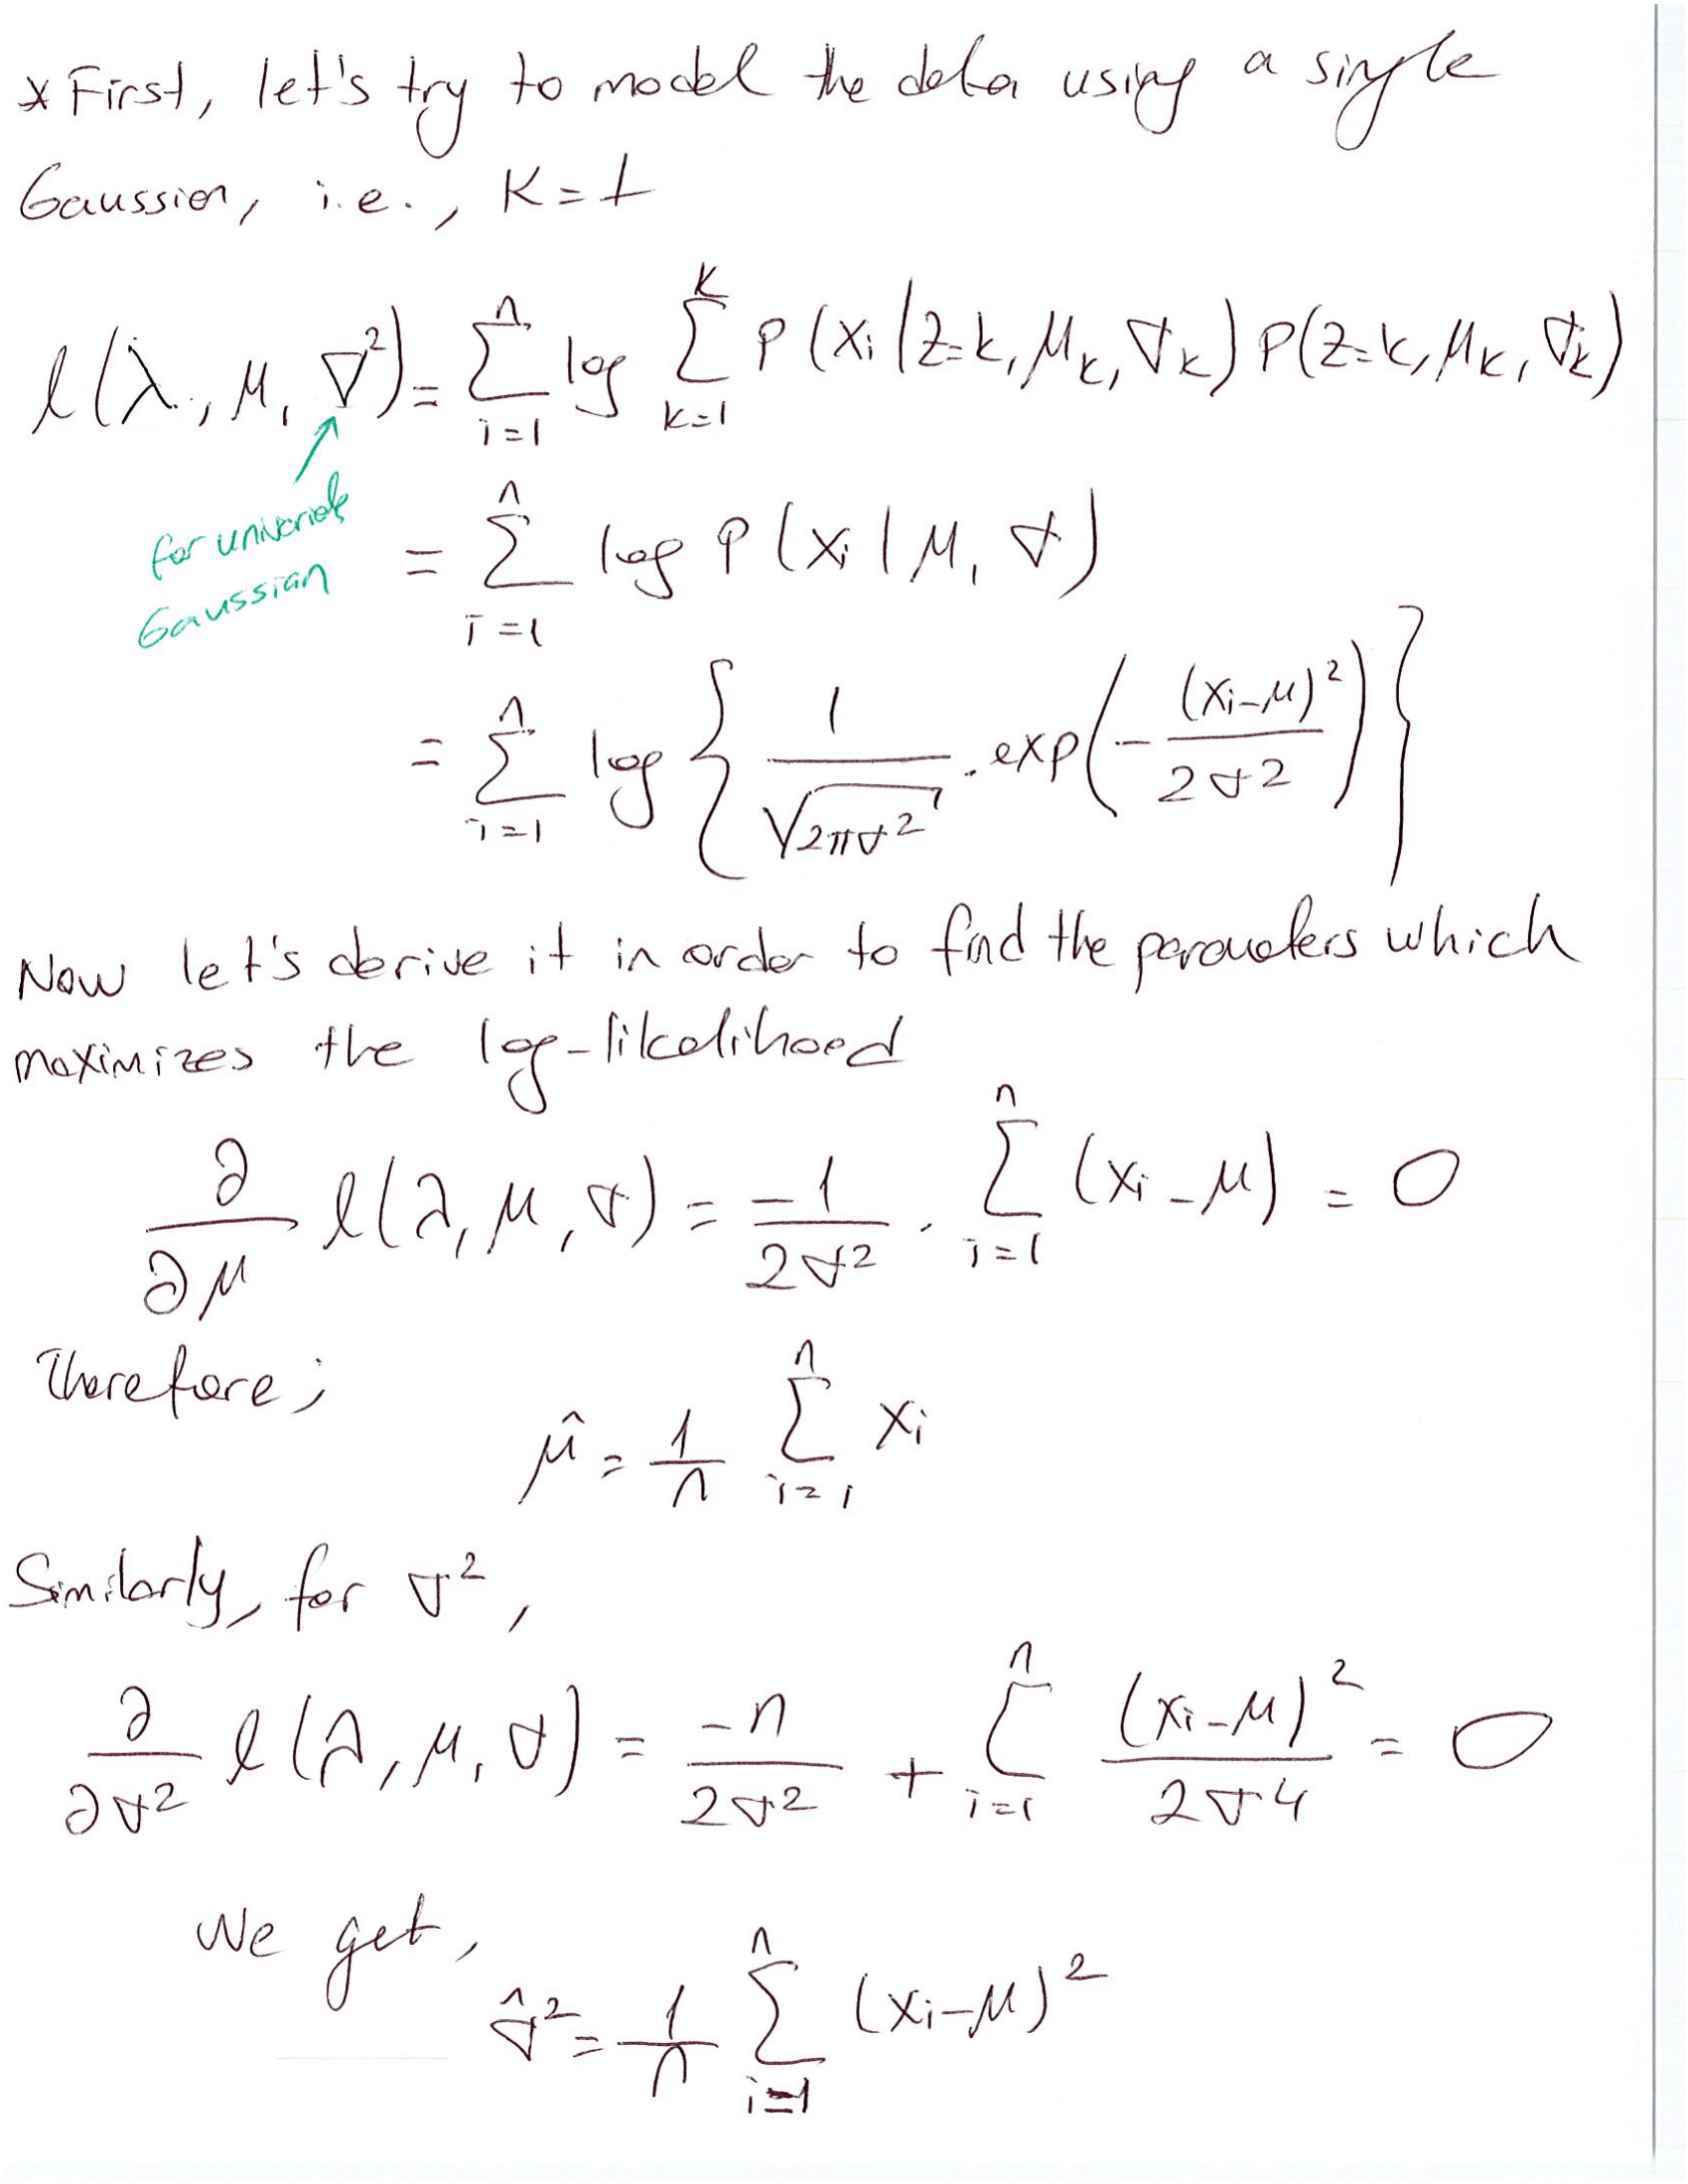 * First, let's try to model the data using a single
Gaussian, i.e., K=1
l(λ, μ, σ²) = Σ_{i=1}^{n} log Σ_{k=1}^{K} P(xᵢ | z=k, μ_k, σ_k) P(z=k, μ_k, σ_k)
for univariate
Gaussian
= Σ_{i=1}^{n} log P(xᵢ | μ, σ)
= Σ_{i=1}^{n} log { 1/√(2πσ²) . exp( - (xᵢ-μ)² / 2σ² ) }
Now let's derive it in order to find the parameters which
maximizes the log-likelihood
∂/∂μ l(λ, μ, σ) = -1/2σ² . Σ_{i=1}^{n} (xᵢ - μ) = 0
Therefore;
μ̂ = 1/n Σ_{i=1}^{n} xᵢ
Similarly, for σ²,
∂/∂σ² l(λ, μ, σ) = -n/2σ² + Σ_{i=1}^{n} (xᵢ-μ)² / 2σ⁴ = 0
We get,
σ̂² = 1/n Σ_{i=1}^{n} (xᵢ-μ)²